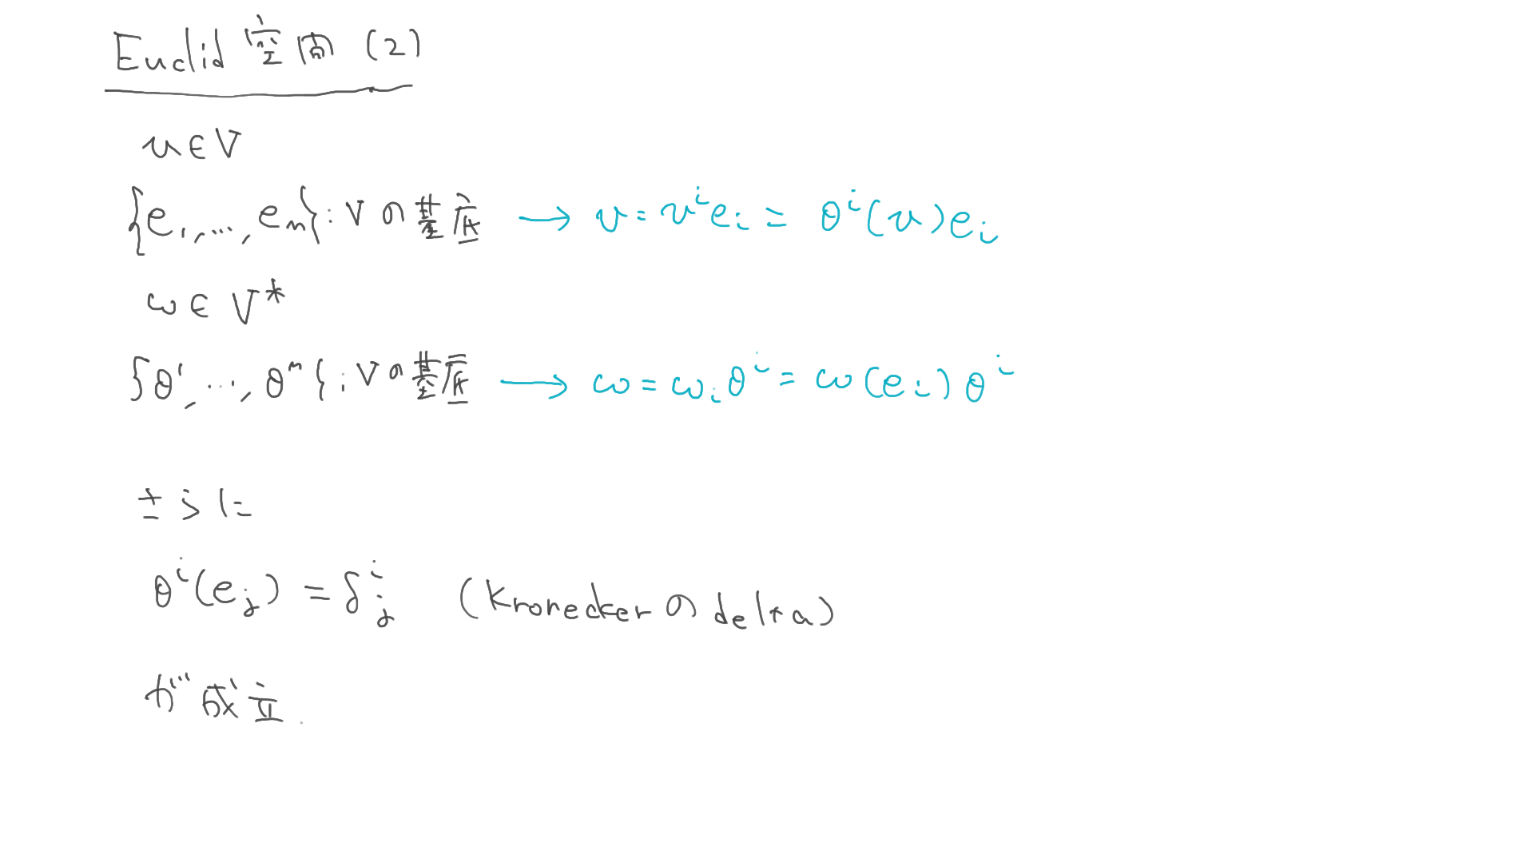 Euclid空間 (2)
v∈V
{e₁,…,eₙ}:Vの基底 → v=vⁱeᵢ=θⁱ(v)eᵢ
ω∈V*
{θ¹,…,θⁿ};Vの基底 → ω=ωᵢθⁱ=ω(eᵢ)θⁱ
さらに
θⁱ(eⱼ)=δⁱⱼ (Kroneckerのdelta)
が成立.